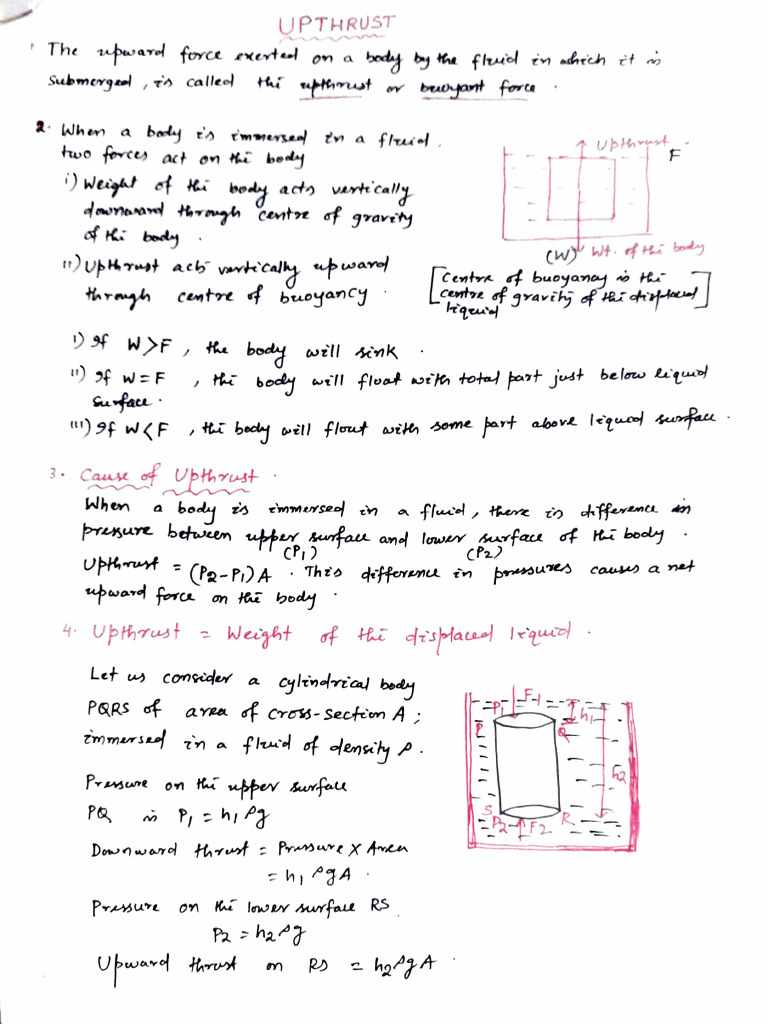 UPTHRUST
1. The upward force exerted on a body by the fluid in which it is
submerged, is called the upthrust or buoyant force.
2. When a body is immersed in a fluid.
two forces act on the body
i) Weight of the body acts vertically
downward through centre of gravity
of the body.
ii) Upthrust acts vertically upward
through centre of buoyancy.
Upthrust
F
(W) Wt. of the body
[Centre of buoyancy is the
centre of gravity of the displaced
liquid]
i) If W>F, the body will sink.
ii) If W=F, the body will float with total part just below liquid
surface.
iii) If W<F, the body will float with some part above liquid surface.
3. Cause of Upthrust.
When a body is immersed in a fluid, there is difference in
pressure between upper surface and lower surface of the body.
(P1) (P2)
Upthrust = (P2-P1)A. This difference in pressures causes a net
upward force on the body.
4. Upthrust = Weight of the displaced liquid.
Let us consider a cylindrical body
PQRS of area of cross-section A;
immersed in a fluid of density ρ.
Pressure on the upper surface
PQ is P1 = h1ρg
Downward thrust = Pressure × Area
= h1ρgA.
Pressure on the lower surface RS
P2 = h2ρg
Upward thrust on RS = h2ρgA.
P1 F1
h1
P Q
h2
S R
P2 F2